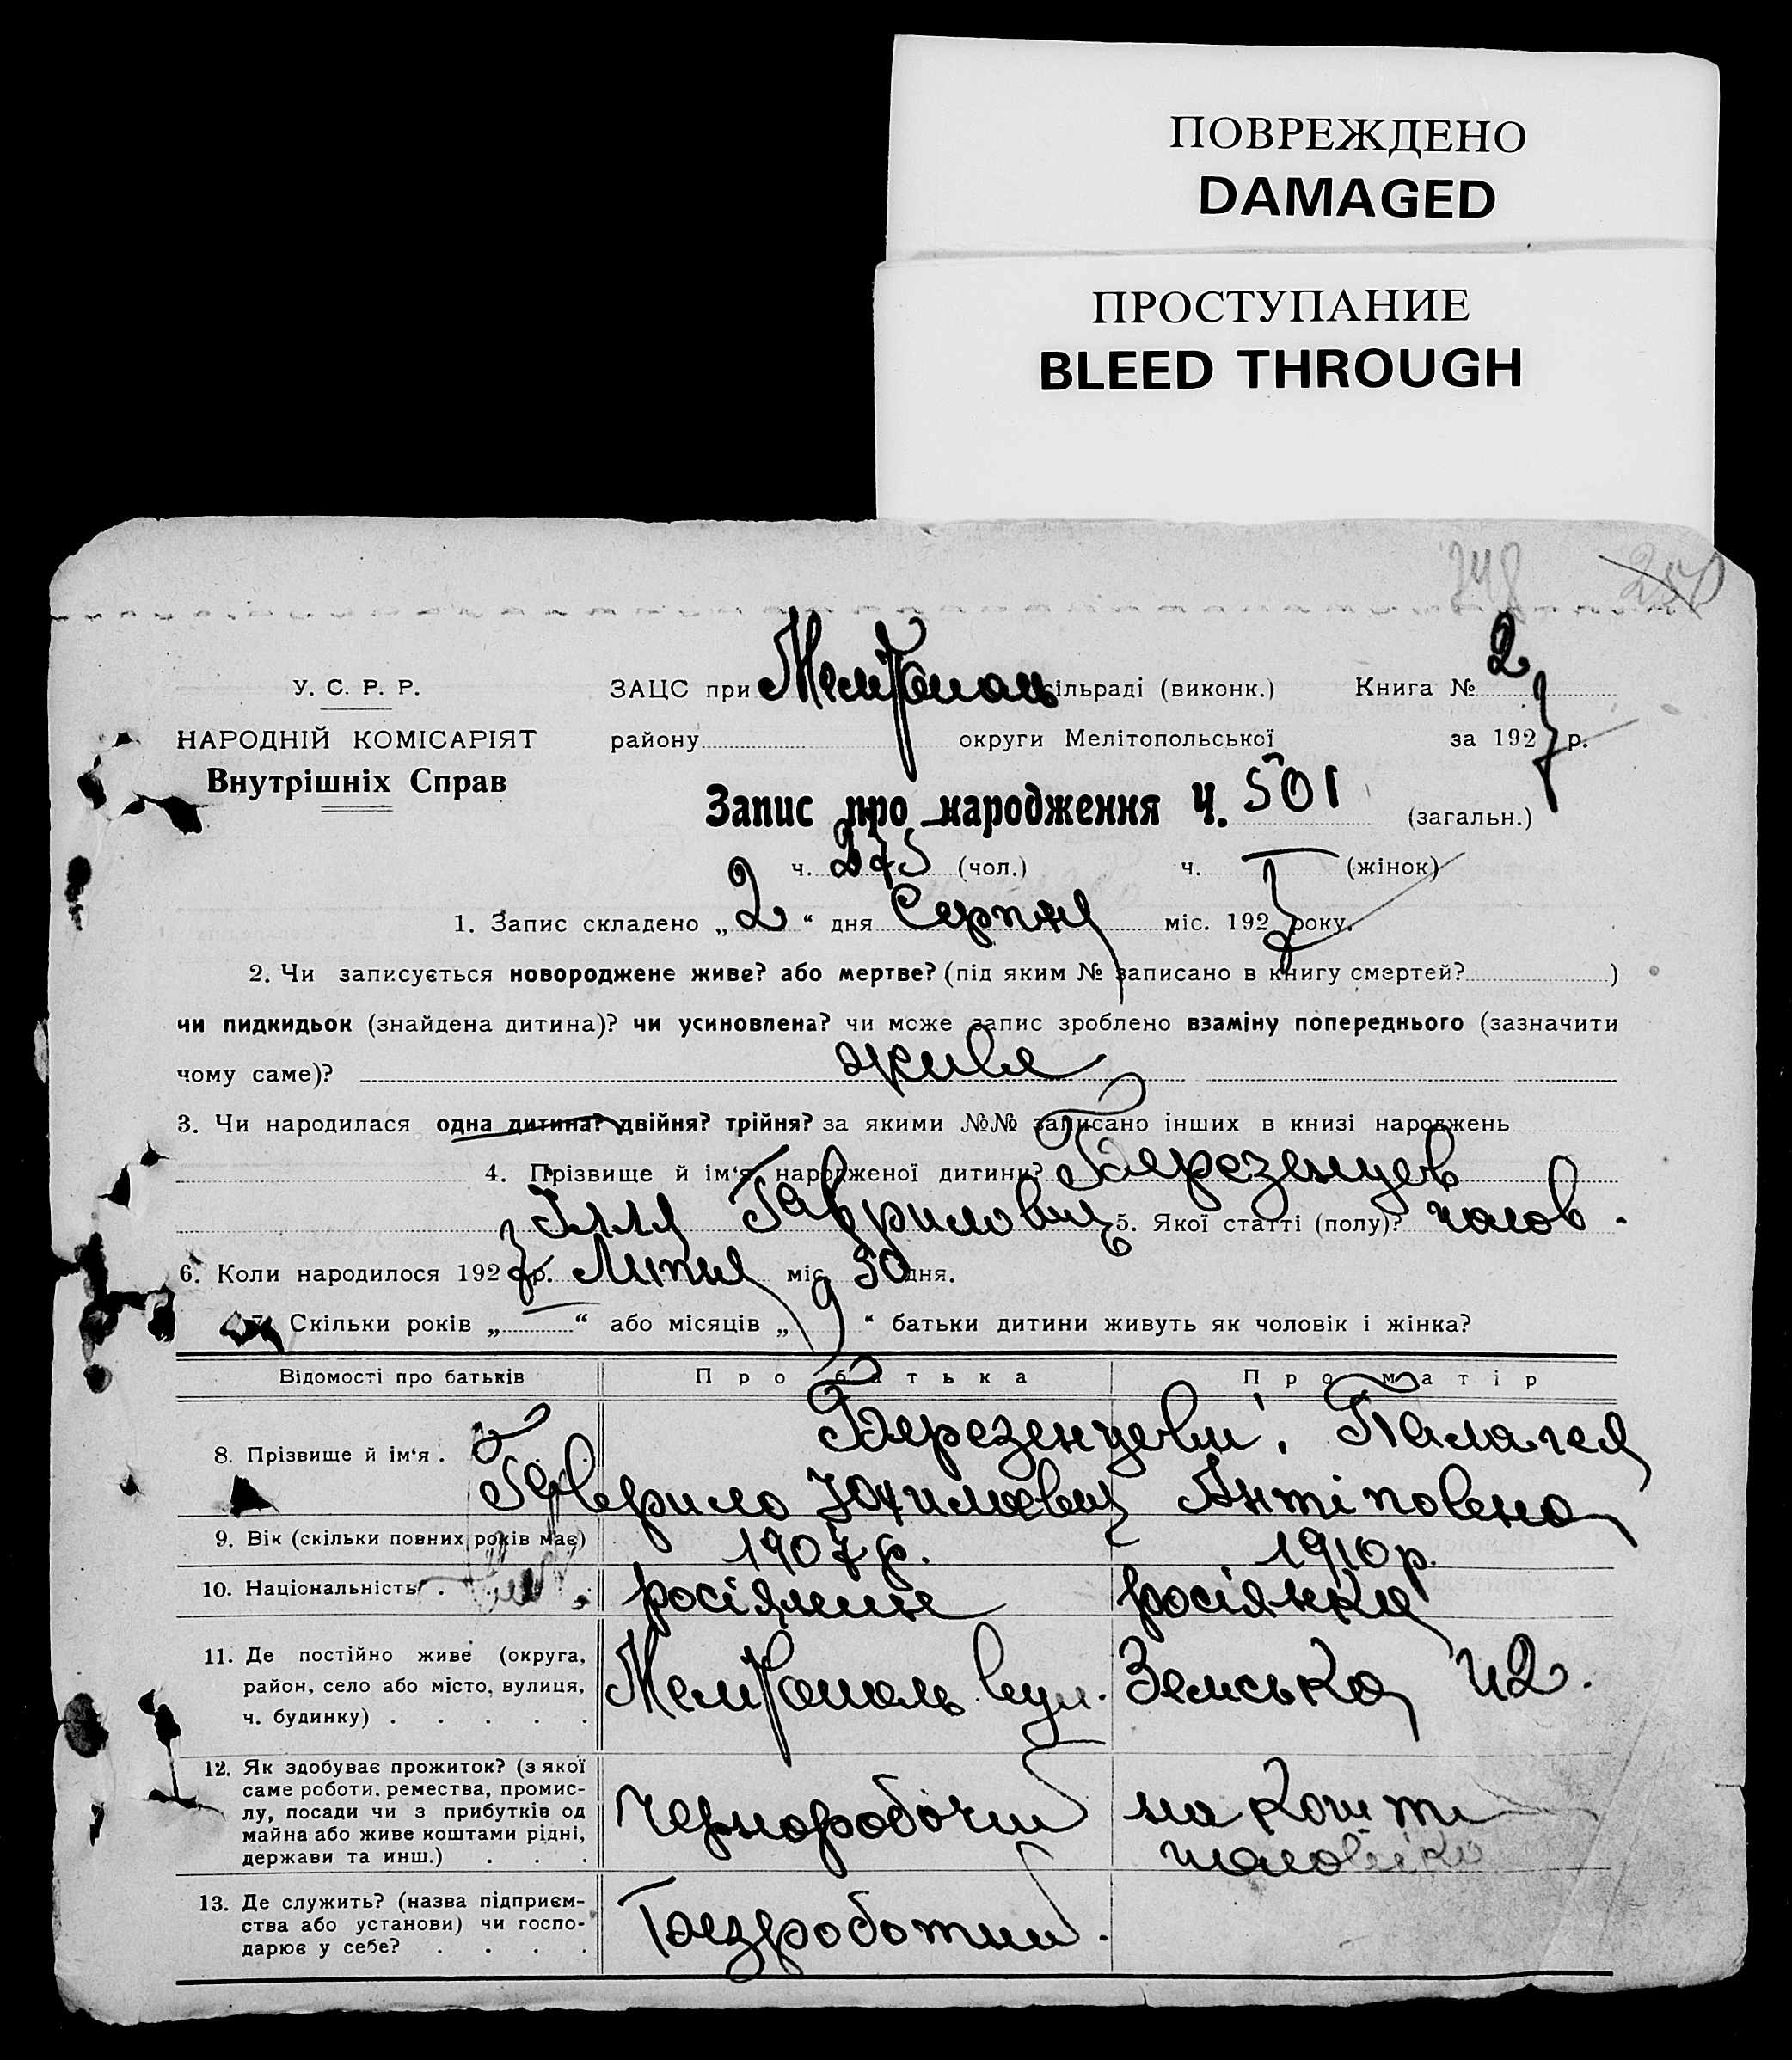 ПОВРЕЖДЕНО
DAMAGED
ПРОСТУПАНИЕ
BLEED THROUGH
248 250
У. С. Р. Р. ЗАЦС при Мелітопольській сільраді (виконк.) Книга № 2
НАРОДНІЙ КОМІСАРІЯТ району округи Мелітопольської за 1927 р.
Внутрішніх Справ
Запис про народження Ч. 501 (загальн.)
ч. 275 (чол.) ч. — (жінок)
1. Запис складено „2“ дня Серпня міс. 1927 року.
2. Чи записується новороджене живе? або мертве? (під яким № записано в книгу смертей? )
чи пидкидьок (знайдена дитина)? чи усиновлена? чи може запис зроблено взаміну попереднього (зазначити
чому саме)? живе
3. Чи народилася одна дитина? двійня? трійня? за якими №№ записано інших в книзі народжень
4. Прізвище й ім‘я народженої дитини? Березенцев
Ілля Гаврилович 5. Якої статті (полу)? чолов.
6. Коли народилося 1927 р. Липня міс. 30 дня.
7. Скільки років „—“ або місяців „9“ батьки дитини живуть як чоловік і жінка?
Відомості про батьків Про батька Про матір
8. Прізвище й ім‘я . Березенцеви. Палагея
Гаврило Юхимович Антіповена
9. Вік (скільки повних років має) 1907 р. 1910 р.
10. Національність . росіянине росіянка
11. Де постійно живе (округа,
район, село або місто, вулиця,
ч. будинку) . . . . . Мелітополь вул. Земська ч 2.
12. Як здобуває прожиток? (з якої
саме роботи, ремества, промис-
лу, посади чи з прибутків од
майна або живе коштами рідні,
держави та инш.) . . . Черноробочий на кошти
чоловіка
13. Де служить? (назва підприєм-
ства або установи) чи госпо-
дарює у себе? . . . . Безроботний.